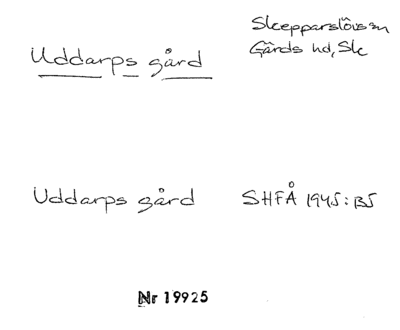 Skepparslövs sn
Gärds hd, Sk
Uddarps gård
Uddarps gård SHFÅ 1945:B5
Nr 19925